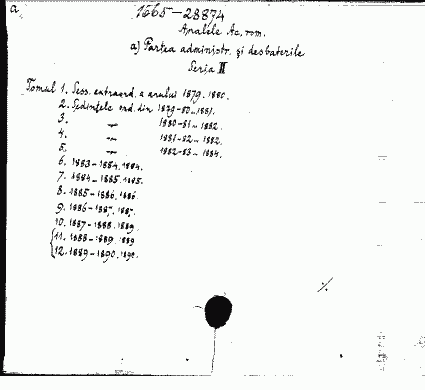 a
1665-28874
Analele Ac. rom.
a) Partea administr. și desbaterile
Seria II
Tomul 1. Sess. extraord. a anului 1879. 1880.
2. Ședințele ord. din 1879-80-1881.
3. -„- 1880-81-1882.
4. -„- 1881-82-1882.
5. -„- 1882-83-1884.
6. 1883-1884. 1884.
7. 1884-1885. 1885.
8. 1885-1886. 1886.
9. 1886-1887. 1887.
10. 1887-1888. 1889.
11. 1888-1889. 1889
12. 1889-1890. 1890.
./.